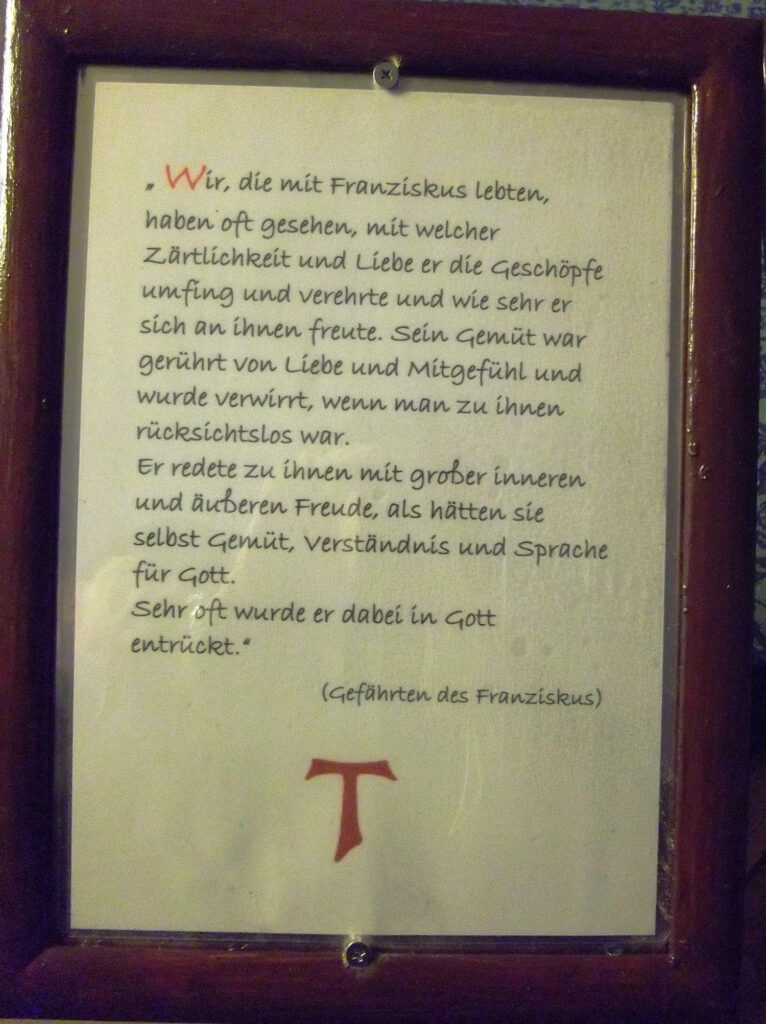 „Wir, die mit Franziskus lebten,
haben oft gesehen, mit welcher
Zärtlichkeit und Liebe er die Geschöpfe
umfing und verehrte und wie sehr er
sich an ihnen freute. Sein Gemüt war
gerührt von Liebe und Mitgefühl und
wurde verwirrt, wenn man zu ihnen
rücksichtslos war.
Er redete zu ihnen mit großer inneren
und äußeren Freude, als hätten sie
selbst Gemüt, Verständnis und Sprache
für Gott.
Sehr oft wurde er dabei in Gott
entrückt.“
(Gefährten des Franziskus)
T